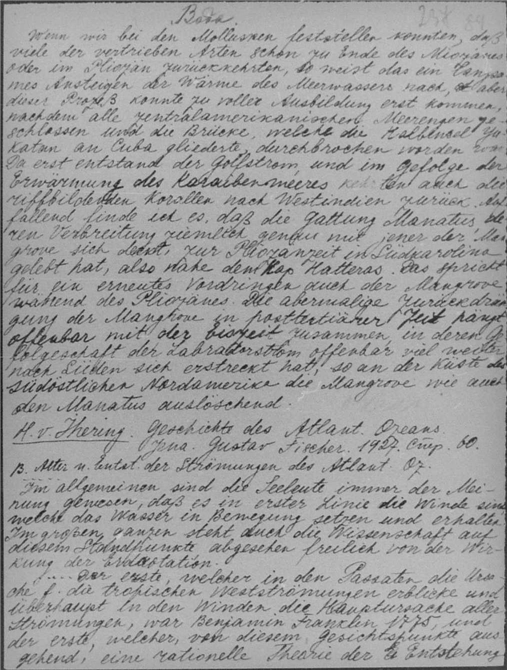 Wenn wir bei den Mollusken feststellen konnten, daß
viele der vertrieben Arten schon zu Ende des Miozäns
oder im Pliozän zurückkehrten, so weist das ein langsa
mes Ansteigen der Wärme des Meerwassers nach, aber
dieser Prozeß konnte zu voller Ausbildung erst kommen,
nachdem alle zentralamerikanischen Meerengen ge-
schlossen und die Brücke, welche die Halbinsel Yu-
katan an Cuba gliederte, durchbrochen worden
Da erst entstand der Golfstrom, und im Gefolge der
Erwärmung des Karaibenmeeres kehrten auch die
riffbildenden Korallen nach Westindien zurück. Auf
fallend finde ich es, daß die Gattung Manatus de
ren Verbreitung ziemlich genau mit jener der Man
grove sich deckt, zur Pliozänzeit in Südkarolina
gelebt hat, also nahe dem Kap Hatteras. Das spricht
für ein erneutes Vordringen auch der Mangrove
während des Pliozänes. Die abermalige Zurückdrän
gung der Mangrove in posttertiärer Zeit hängt
offenbar mit der Eiszeit zusammen, in deren Ge
folgeschaft der Labradorstrom offenbar viel weiter
nach Süden sich erstreckt hat, so an der Küste des
südöstlichen Nordamerika die Mangrove wie auch
den Manatus auslöschend.
H. v. Ihering. Geschichte des Atlant. Ozeans.
Jena. Gustav Fischer. 1927. 60.
B. Alter u. Entst. der Strömungen des Atlant. Oz.
Im allgemeinen sind die Seeleute immer der Mei-
nung gewesen, daß es in erster Linie die Winde sind
welche das Wasser in Bewegung setzen und erhalten
Im großen ganzen steht auch die Wissenschaft auf
diesem Standpunkte abgesehen freilich von der Wir-
kung der Erdrotation.
der erste, welcher in den Passaten die Ursa-
che f. die tropischen Westströmungen erblickte und
überhaupt in den Winden die Hauptursache aller
Strömungen, war Benjamin Franklin 1775, und
der erste, welcher, von diesem Gesichtspunkte aus
gehend, eine rationelle Theorie der Entstehung